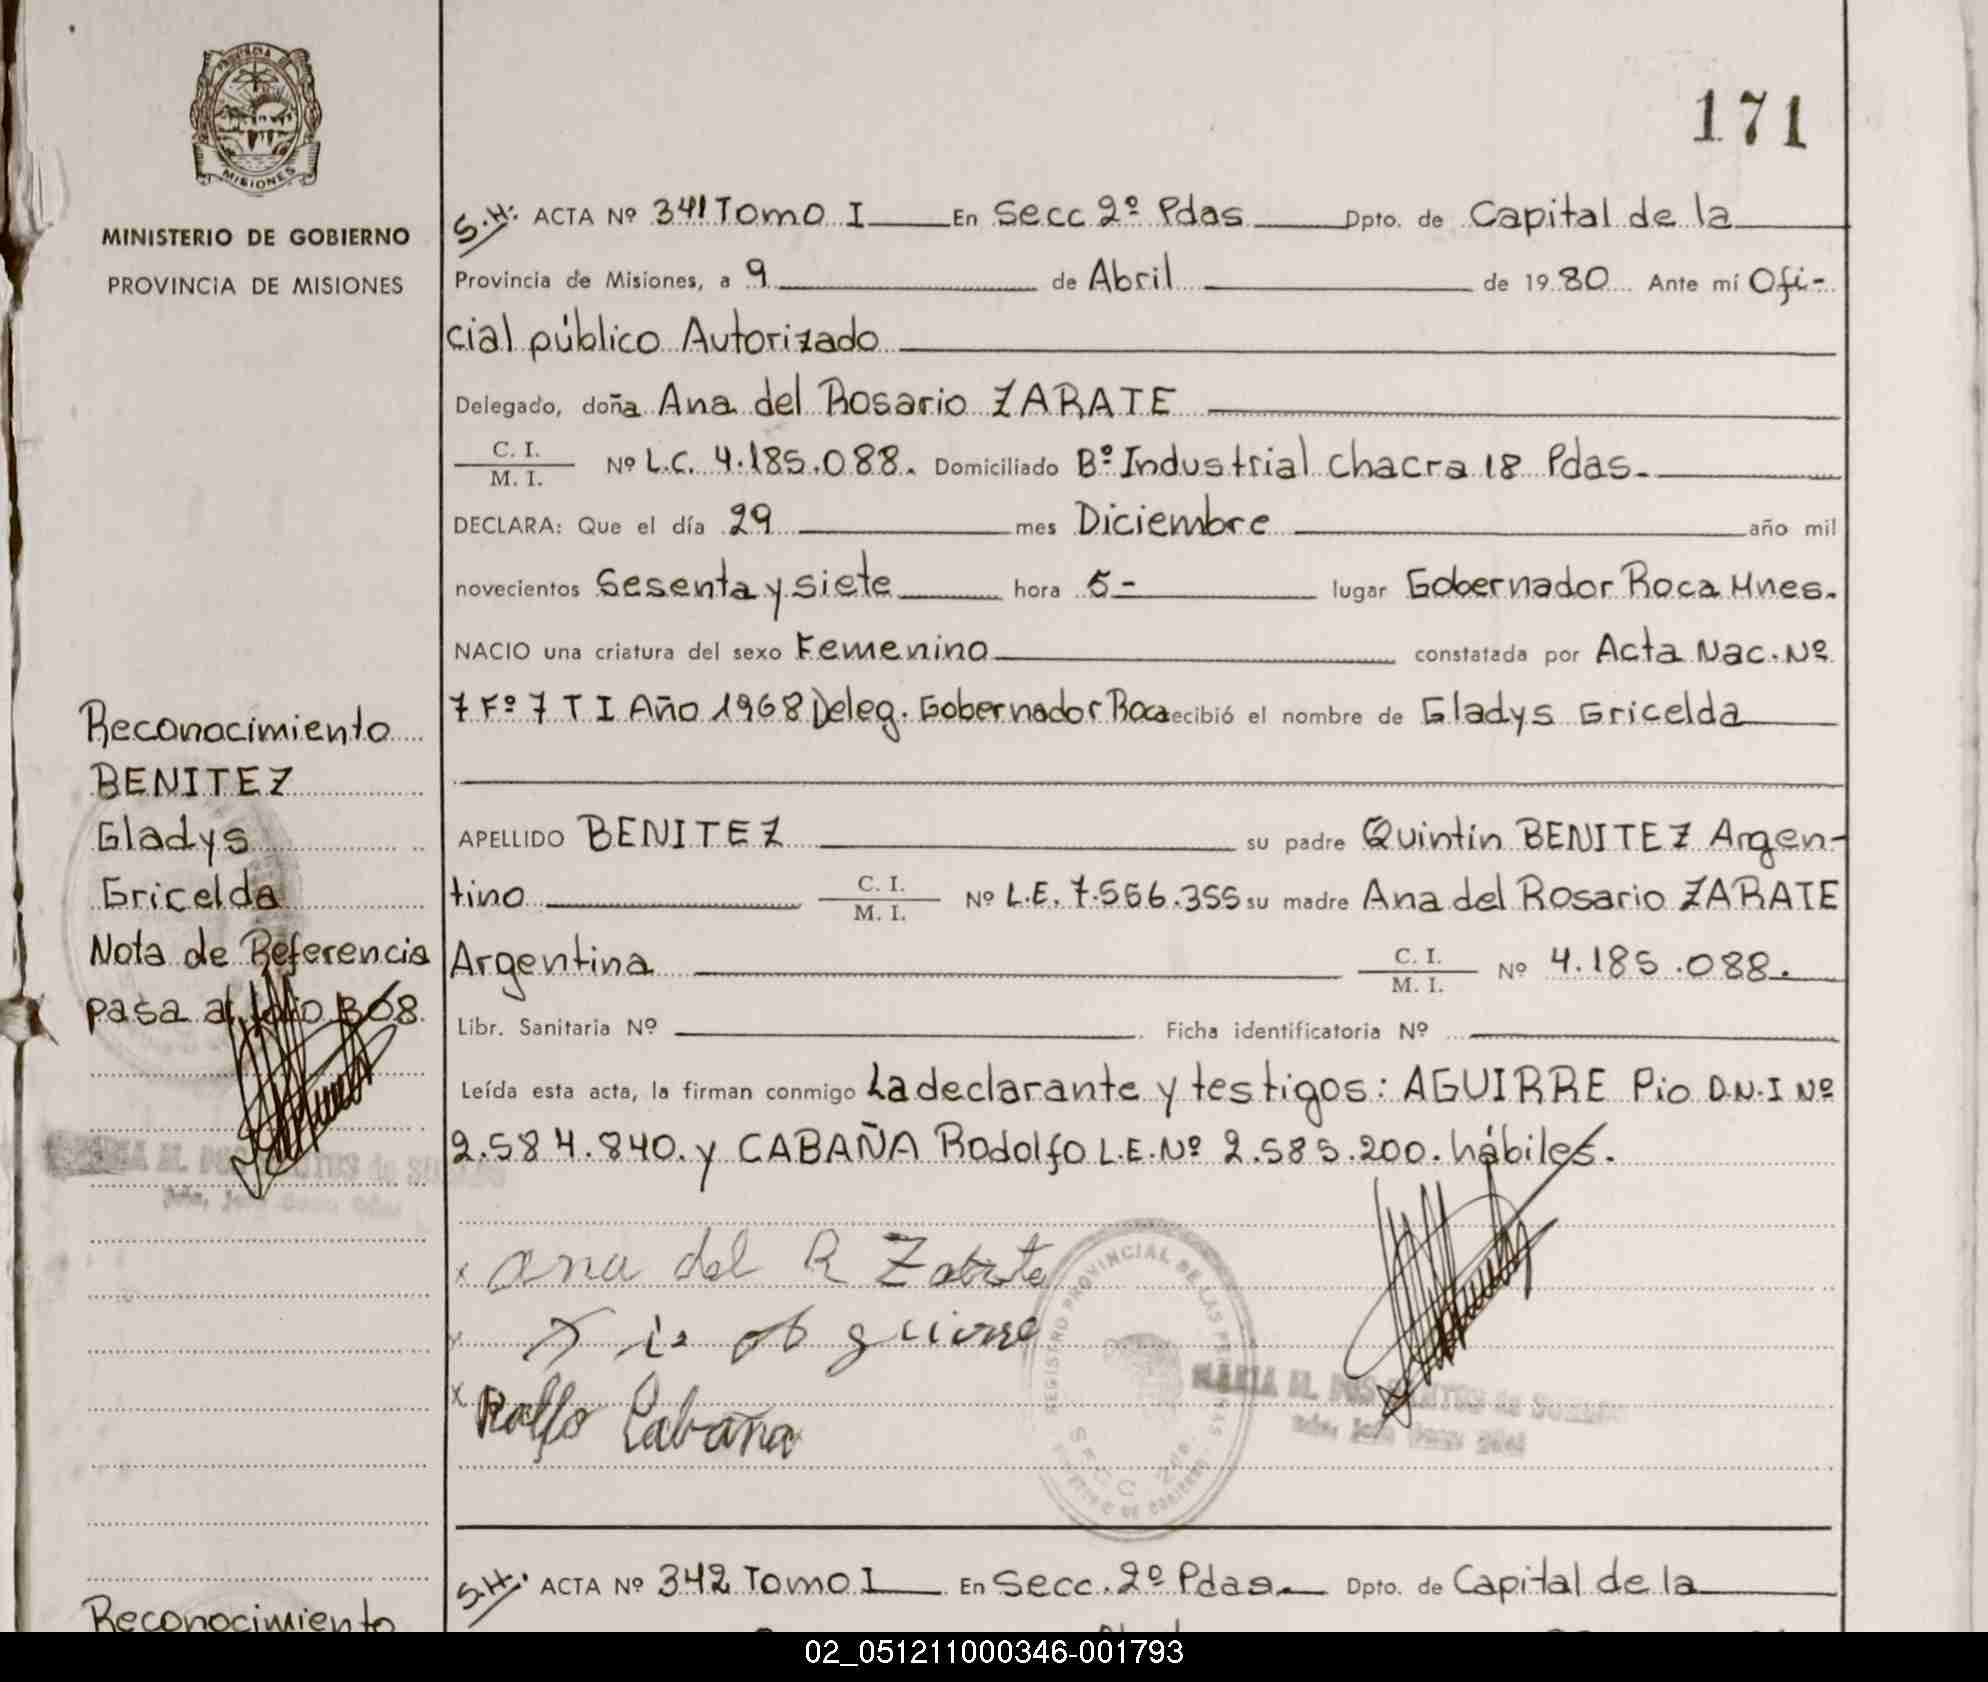 171
PROVINCIA DE
MISIONES
MINISTERIO DE GOBIERNO
PROVINCIA DE MISIONES
S.H: ACTA Nº 341 Tomo I En Secc 2º Pdas Dpto. de Capital de la
Provincia de Misiones, a 9 de Abril de 1980 Ante mí Ofi-
cial público Autorizado
Delegado, doña Ana del Rosario ZARATE
C. I.
M. I. Nº L.C. 4.185.088. Domiciliado Bº Industrial chacra 18 Pdas.
DECLARA: Que el día 29 mes Diciembre año mil
novecientos Sesenta y siete hora 5- lugar Gobernador Roca Mnes.
NACIO una criatura del sexo Femenino constatada por Acta Nac. Nº
7 Fº 7 T I Año 1968 Deleg. Gobernador Roca ecibió el nombre de Gladys Gricelda
APELLIDO BENITEZ su padre Quintín BENITEZ Argen-
tino C. I.
M. I. Nº L.E. 7.556.355 su madre Ana del Rosario ZARATE
Argentina C. I.
M. I. Nº 4.185.088.
Libr. Sanitaria Nº Ficha identificatoria Nº
Leída esta acta, la firman conmigo La declarante y testigos: AGUIRRE Pio D.N.I Nº
2.584.840. y CABAÑA Rodolfo L.E. Nº 2.585.200. hábiles.
Reconocimiento
BENITEZ
Gladys
Gricelda
Nota de Referencia
pasa al folio 308.
x Ana del R Zarate
x
x Rolfo Cabaña
REGISTRO PROVINCIAL DE LAS PERSONAS
SECC. 2da.
MINISTERIO DE GOBIERNO
MARIA M. DOS SANTOS de
S.H. ACTA Nº 342 Tomo I En Secc. 2º Pdas. Dpto. de Capital de la
Reconocimiento
02_051211000346-001793